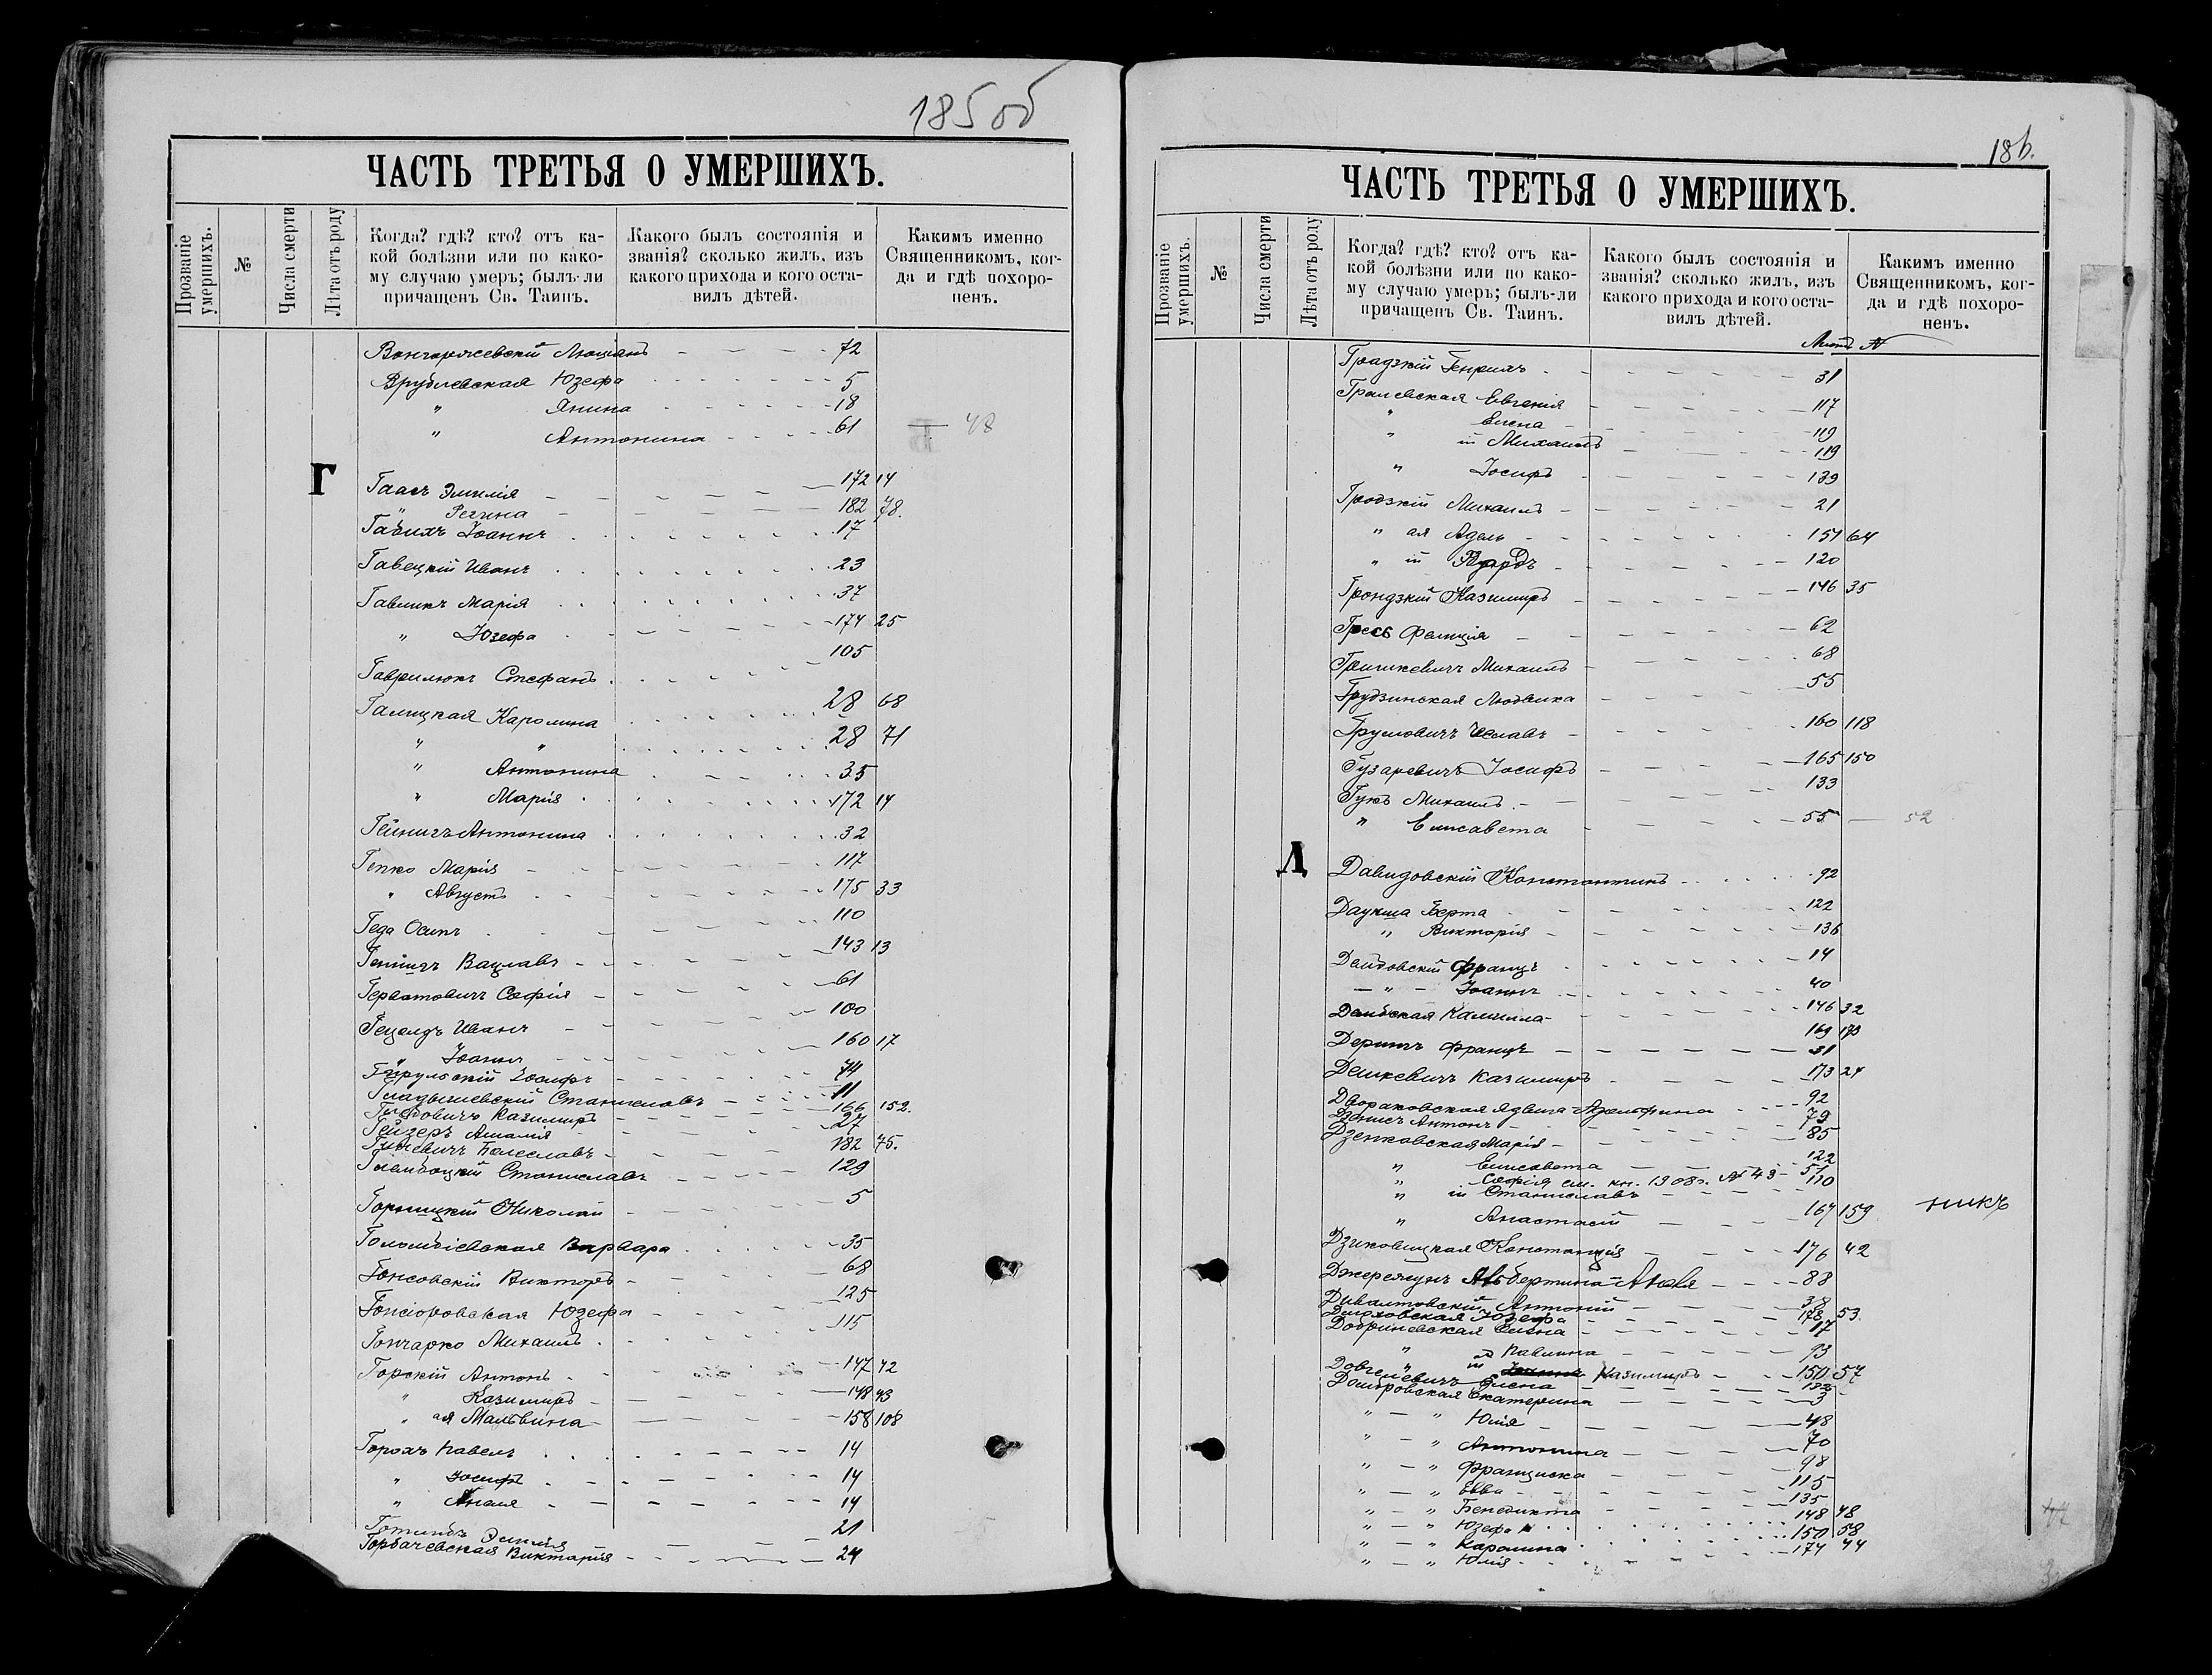 185 об
ЧАСТЬ ТРЕТЬЯ О УМЕРШИХЪ.
Прозваніе умершихъ.
№
Числа смерти
Лѣта отъ роду
Когда? гдѣ? кто? отъ ка-
кой болѣзни или по како-
му случаю умеръ; былъ-ли
причащенъ Св. Таинъ.
Какого былъ состоянія и
званія? сколько жилъ, изъ
какого прихода и кого оста-
вилъ дѣтей.
Какимъ именно
Священникомъ, ког-
да и гдѣ похоро-
ненъ.
Вонгоржевскій Люціанъ 72
Врублевская Юзефа 5
" Янина 18
" Антонина 61 — 48
Г
Гаасъ Эмилія 172 14
" Регина 182 78.
Габихъ Іоаннъ 17
Гавецкій Иванъ 23
Гавликъ Марія 37
" Юзефа 174 25
Гаврилюкъ Стефанъ 105
Галицкая Каролина 28 68
" " 28 71
" Антонина 35
" Марія 172 14
Гейнигъ Антонина 32
Гепко Марія 117
" Августъ 175 33
Геда Осипъ 110
Вацлавъ 143 13
Герватовичъ Софія 61
Гецелдъ Иванъ 100
" Іоаннъ 160 17
Іосифъ 74
Гладышевскій Станиславъ 11
Казимиръ 166 152.
Гейзеръ Амалія 27
Болеславъ 182 75.
Глембоцкій Станиславъ 129
Николай 5
Голомбіевская Варвара 35
Гонсовскій Викторъ 68
Гонсіоровская Юзефа 125
Гончарко Михаилъ 115
Горскій Антонъ 147 42
" Казимиръ 148 43
" ая Мальвина 158 108
Горохъ Павелъ 14
" Іосифъ 14
" 14
Эмилія 21
Горбачевская Викторія 24
186.
ЧАСТЬ ТРЕТЬЯ О УМЕРШИХЪ.
Прозваніе умершихъ.
№
Числа смерти
Лѣта отъ роду
Когда? гдѣ? кто? отъ ка-
кой болѣзни или по како-
му случаю умеръ; былъ-ли
причащенъ Св. Таинъ.
Какого былъ состоянія и
званія? сколько жилъ, изъ
какого прихода и кого оста-
вилъ дѣтей.
Какимъ именно
Священникомъ, ког-
да и гдѣ похоро-
ненъ.
Листъ №
Градзкій Генрихъ 31
Гралевская Евгенія 117
" Елена 119
" ій Михаилъ 119
" Іосифъ 139
Гродзкій Михаилъ 21
" ая Адель 151 64
" ій 120
Грондзкій Казимиръ 146 35
Гресь Фелиція 62
Гришкевичъ Михаилъ 68
Грудзинская Людвика 55
Грумовичъ Чеславъ 160 118
Гузаревичъ Іосифъ 165 150
Гукъ Михаилъ 133
" Елисавета 55 — 52
Д
Давидовскій Константинъ 92
Даукша Берта 122
" Викторія 136
Францъ 14
— " — Іоаннъ 40
Камилла 146 32
169 173
Францъ 31
Дешкевичъ Казимиръ 173 24
Двораковская Ядвига Адельфина 92
Антонъ 79
Дзенковская Марія 85
" Елисавета 122
" Софія см. кн. 1908 г. № 43 — 51
" ій Станиславъ 110
" Анастасій 167 159 никъ
Констанція 176 42
Альбертина=Анеля 88
Антоній 38
Юзефа 178 53.
Добриневская Елена 17
" Павлина 93
" ій Казимиръ 150 57
Довгелевичъ Елена
Домбровская Екатерина 3
" — " Юлія 48
" — " Антонина 70
" — " Франциска 98
" — " Евва 115
" — " Бенедикта 135
" — " Юзефа 148 48
" — " Каролина 150 58
" — " Юлія 174 44